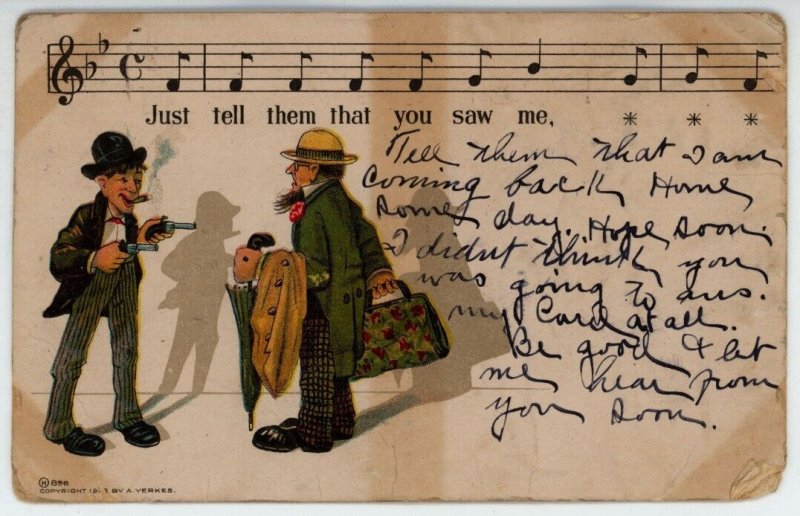 Just tell them that you saw me, * * *
Tell them that I am
coming back Home
some day. Hope soon.
I didnt think you
was going to ans.
my Card at all.
Be good & let
me hear from
you soon.
896
COPYRIGHT BY A. YERKES.